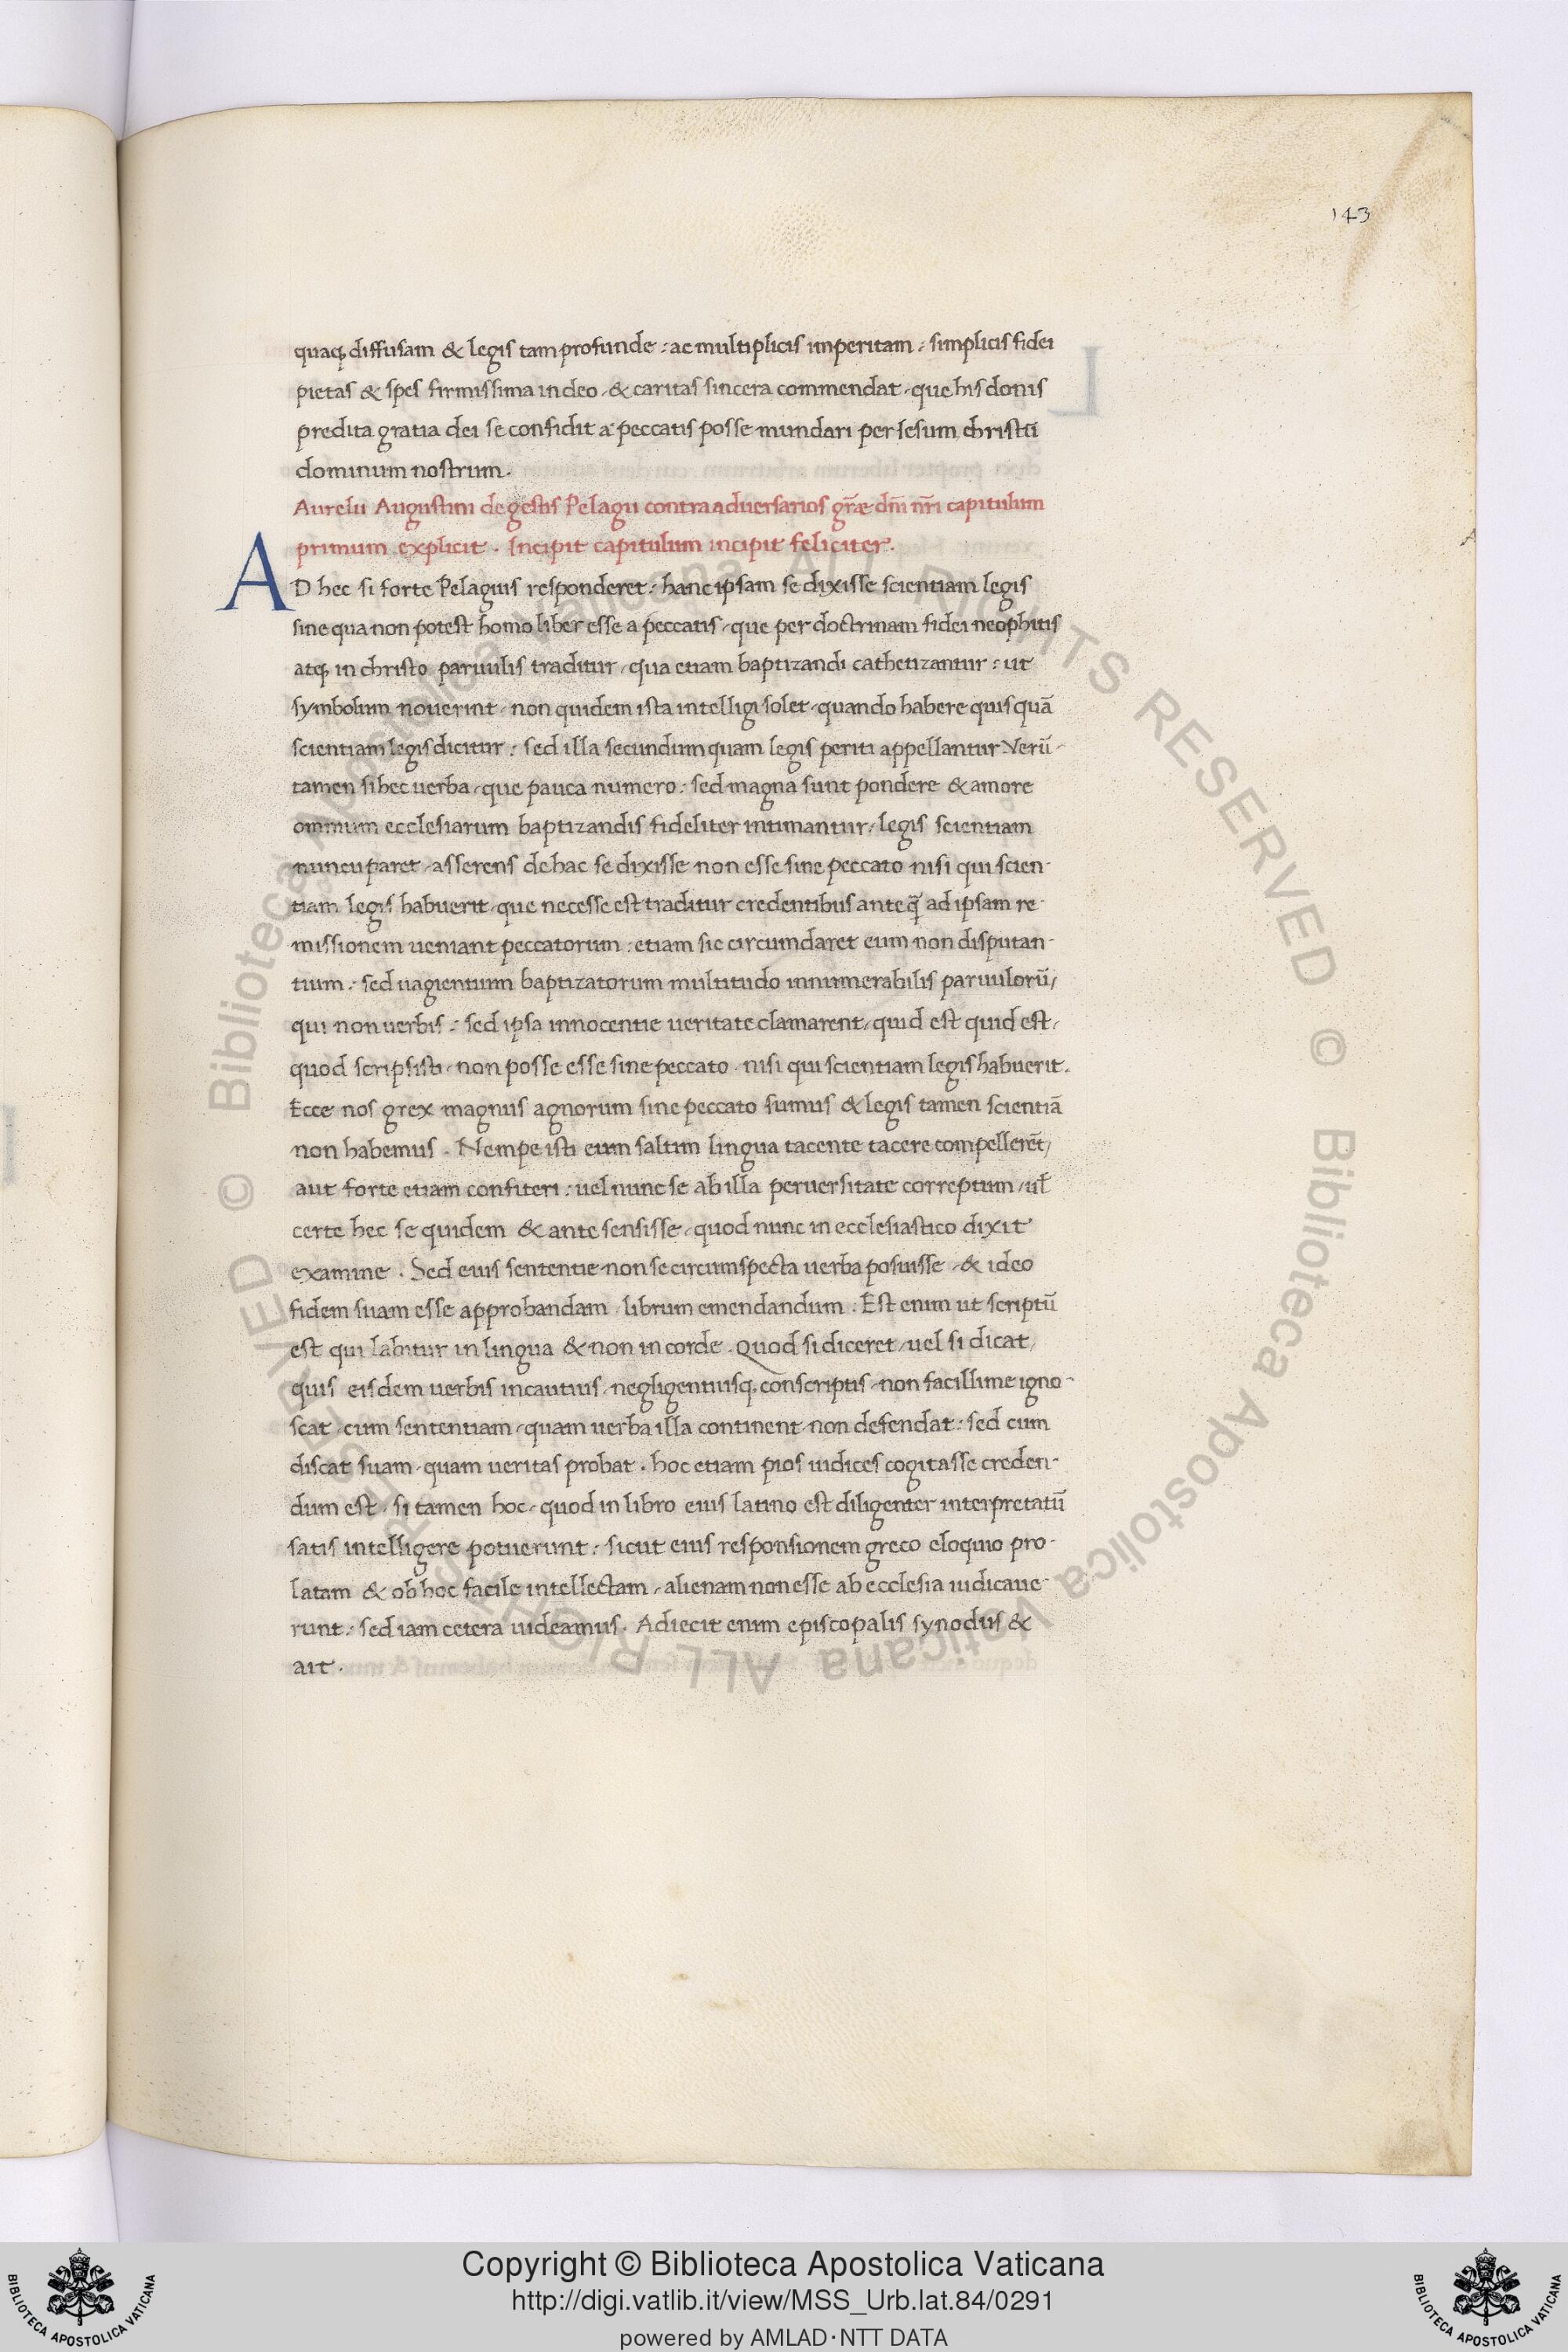 143
quaq; diffusam & legis tam profunde : ac multiplicis imperitam : simplicis fidei
pietas & spes firmissima in deo , & caritas sincera commendat , que his donis
predita gratia dei se confidit a peccatis posse mundari per Iesum christū
dominum nostrum .
Aurelii Augustini de gestis Pelagii contra aduersarios gr̄æ dn̄i nr̄i capitulum
primum explicit . Incipit capitulum incipit feliciter .
AD hec si forte Pelagius responderet : hanc ipsam se dixisse scientiam legis
sine qua non potest homo liber esse a peccatis , que per doctrinam fidei neophitis
atq; in christo paruulis traditur , qua etiam baptizandi cathetizantur : ut
symbolum nouerint , non quidem ista intelligi solet , quando habere quisquā
scientiam legis dicitur : sed illa secundum quam legis periti appellantur Verū-
tamen si hec uerba , que pauca numero : sed magna sunt pondere & amore
omnium ecclesiarum baptizandis fideliter intimantur , legis scientiam
nuncuparet , asserens de hac se dixisse non esse sine peccato nisi qui scien-
tiam legis habuerit , que necesse est traditur credentibus anteq̄ ad ipsam re-
missionem ueniant peccatorum : etiam sic circumdaret eum non disputan-
tium : sed uagientium baptizatorum multitudo innumerabilis paruulorū ,
qui non uerbis : sed ipsa innocentie ueritate clamarent , quid est quid est ,
quod scripsisti , non posse esse sine peccato , nisi qui scientiam legis habuerit .
Ecce nos grex magnus agnorum sine peccato sumus & legis tamen scientiā
non habemus . Nempe isti eum saltim lingua tacente tacere compellerēt ,
aut forte etiam confiteri : uel nunc se ab illa peruersitate correptum , ul̄
certe hec se quidem & ante sensisse , quod nunc in ecclesiastico dixit
examine . Sed eius sententie non se circumspecta uerba posuisse , & ideo
fidem suam esse approbandam , librum emendandum . Est enim ut scriptū
est qui labitur in lingua & non in corde . Quod si diceret , uel si dicat ,
quis eisdem uerbis incautius , negligentiusq; conscriptis , non facillime igno-
scat , cum sententiam , quam uerba illa continent , non defendat : sed cum
discat suam , quam ueritas probat . hoc etiam pios iudices cogitasse creden-
dum est , si tamen hoc , quod in libro eius latino est diligenter interpretatū
satis intelligere potuerunt : sicut eius responsionem greco eloquio pro-
latam & ob hoc facile intellectam , alienam non esse ab ecclesia iudicaue-
runt : sed iam cetera uideamus . Adiecit enim episcopalis synodus &
ait .
© Biblioteca Apostolica Vaticana ALL RIGHTS RESERVED © Biblioteca Apostolica Vaticana ALL RIGHTS RESERVED
Copyright © Biblioteca Apostolica Vaticana
http://digi.vatlib.it/view/MSS_Urb.lat.84/0291
powered by AMLAD·NTT DATA
BIBLIOTECA APOSTOLICA VATICANA
BIBLIOTECA APOSTOLICA VATICANA